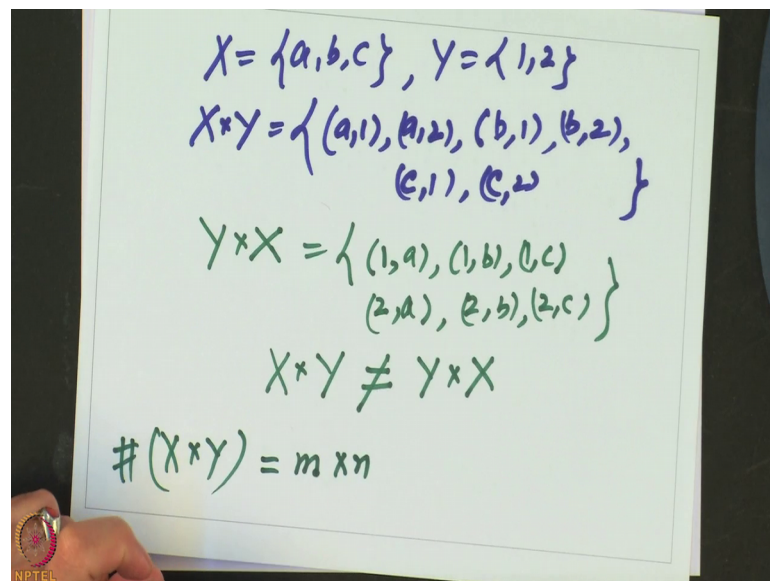 X = {a,b,c}, Y = {1,2}
X×Y = {(a,1), (a,2), (b,1), (b,2),
(c,1), (c,2) }
Y×X = {(1,a), (1,b), (1,c)
(2,a), (2,b), (2,c) }
X×Y ≠ Y×X
#(X×Y) = m×n
NPTEL